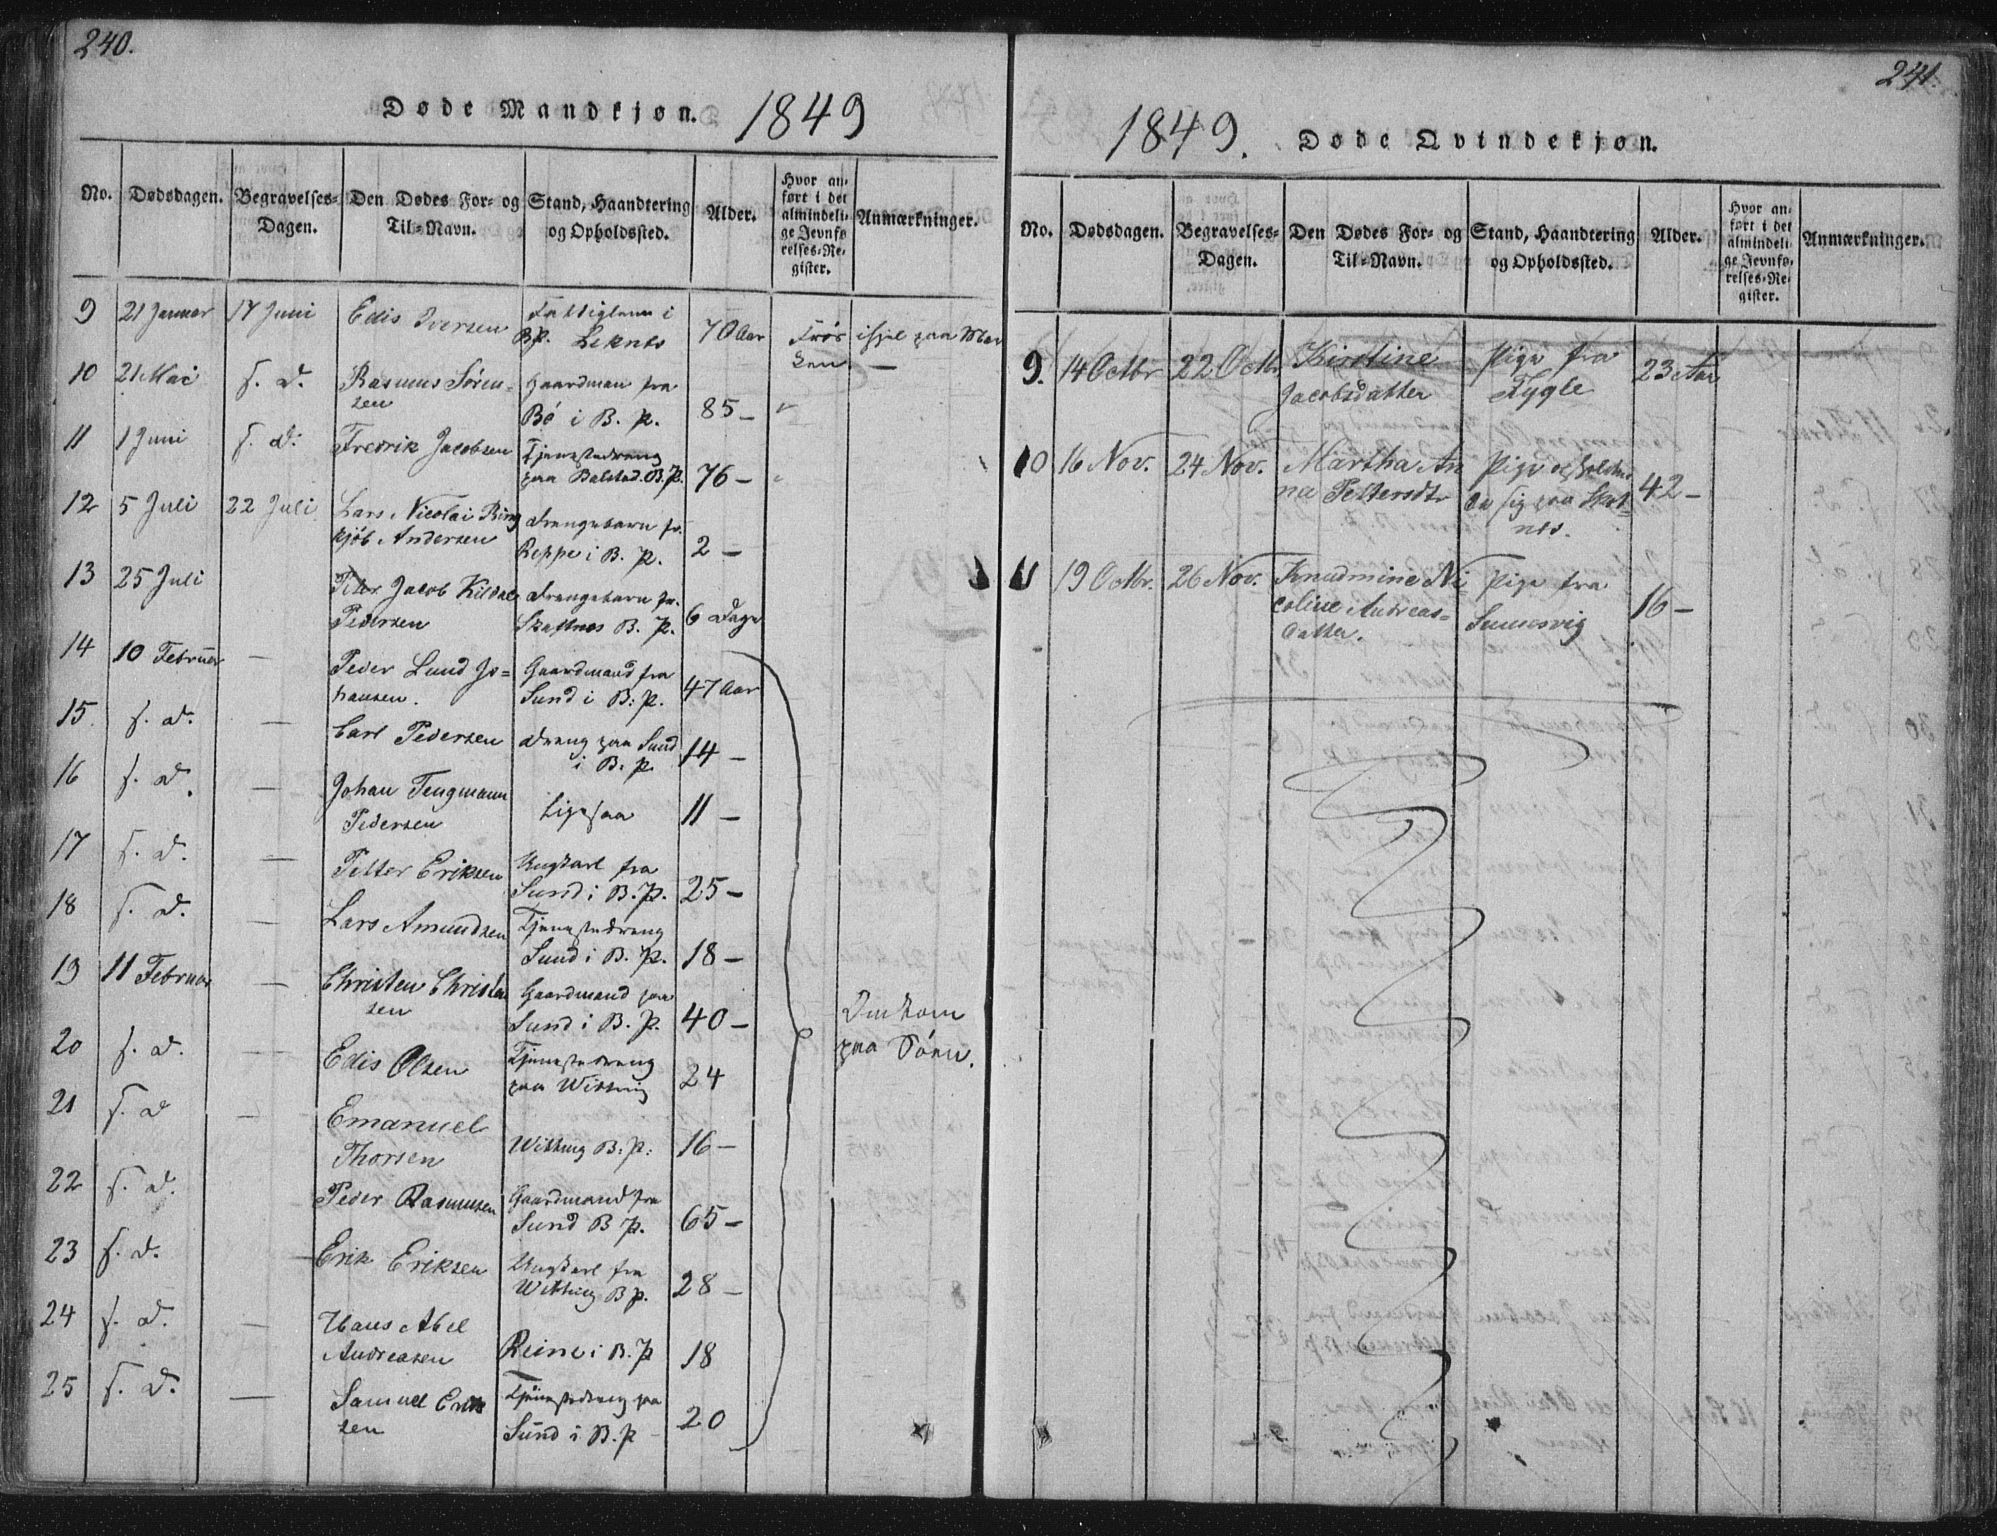 240.
Døde Mandkjøn. 1849
No. Dødsdagen. Begravelses-Dagen. Den Dødes For- og Til-Navn. Stand, Haandtering og Opholdssted. Alder. Hvor anført i det almindelige Jevnførelses-Register. Anmærkninger.
9 21 Januar 17 Juni Edis Iversen Fattiglem i
B.p. Leknes 70 Aar ihjel paa
10 21 Mai s. d. Rasmus Sören-
sen Gaardman fra
Bö i B. p. 85 –
11 1 Juni s. d. Fredrik Jacobsen Tjenestedreng
paa Balstad B. p. 76 –
12 5 Juli 22 Juli Lars Nicolai
Andersen Drengebarn fr.
Reppe i B. p. 2 –
13 25 Juli Peter Jacob Kildal
Pedersen Drengebarn fr.
Skatnes B. p. 6 Dage
14 10 Februar – Peder Lund Jo-
hansen. Gaardmand fra
Sund i B. p. 47 Aar
15. s. d. – Carl Pedersen Dreng paa Sund
i B. p. 14 –
16 s. d. – Johan Tengmann
Pedersen Ligesaa 11 –
17 s. d. – Petter Eriksen Ungkarl fra
Sund i B. p. 25 –
18 s. d. – Lars Amundsen Tjenestedreng
Sund i B. p. 18 –
19 11 Februar – Christen Christen
sen Gaardmand paa
Sund i B. p. 40 – Omkom
paa Söen.
20 s. d. – Edis Olsen Tjenestedreng
paa 24
21 s. d – Emanuel
Thorsen B. p. 16 –
22 s. d. – Peder Rasmussen Gaardmand fra
Sund B p. 65 –
23 s. d. – Erik Eriksen Ungkarl fra
B p. 28 –
24 s. d. – Hans Abel
Andreasen Reine i B. p 18
25 s. d. – Samuel Erik
sen Tjenestedreng paa
Sund i B. p 20
241.
1849. Døde Qvindekjøn.
No. Dødsdagen. Begravelses-Dagen. Den Dødes For- og Til-Navn. Stand, Haandtering og Opholdssted. Alder. Hvor anført i det almindelige Jevnførelses-Register. Anmærkninger.
9. 14 Octbr 22 Octbr. Kirstine
Jacobsdatter Pige fra
Fygle 23 Aar
10 16 Nov. 24 Nov. Martha An
na Pettersdtr Pige
sig paa Skat-
nes. 42 –
11 19 Octbr. 26 Nov. Knudmine Ni
coline Andreas-
datter. Pige fra
16 –